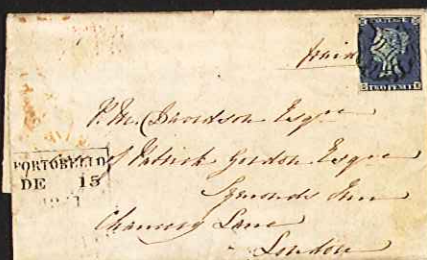 paid
TWO PENCE
P. M. Davidson Esqre
Patrick Gordon Esqre
Symonds Inn
Chancery Lane
London
PORTOBELLO
DE 15